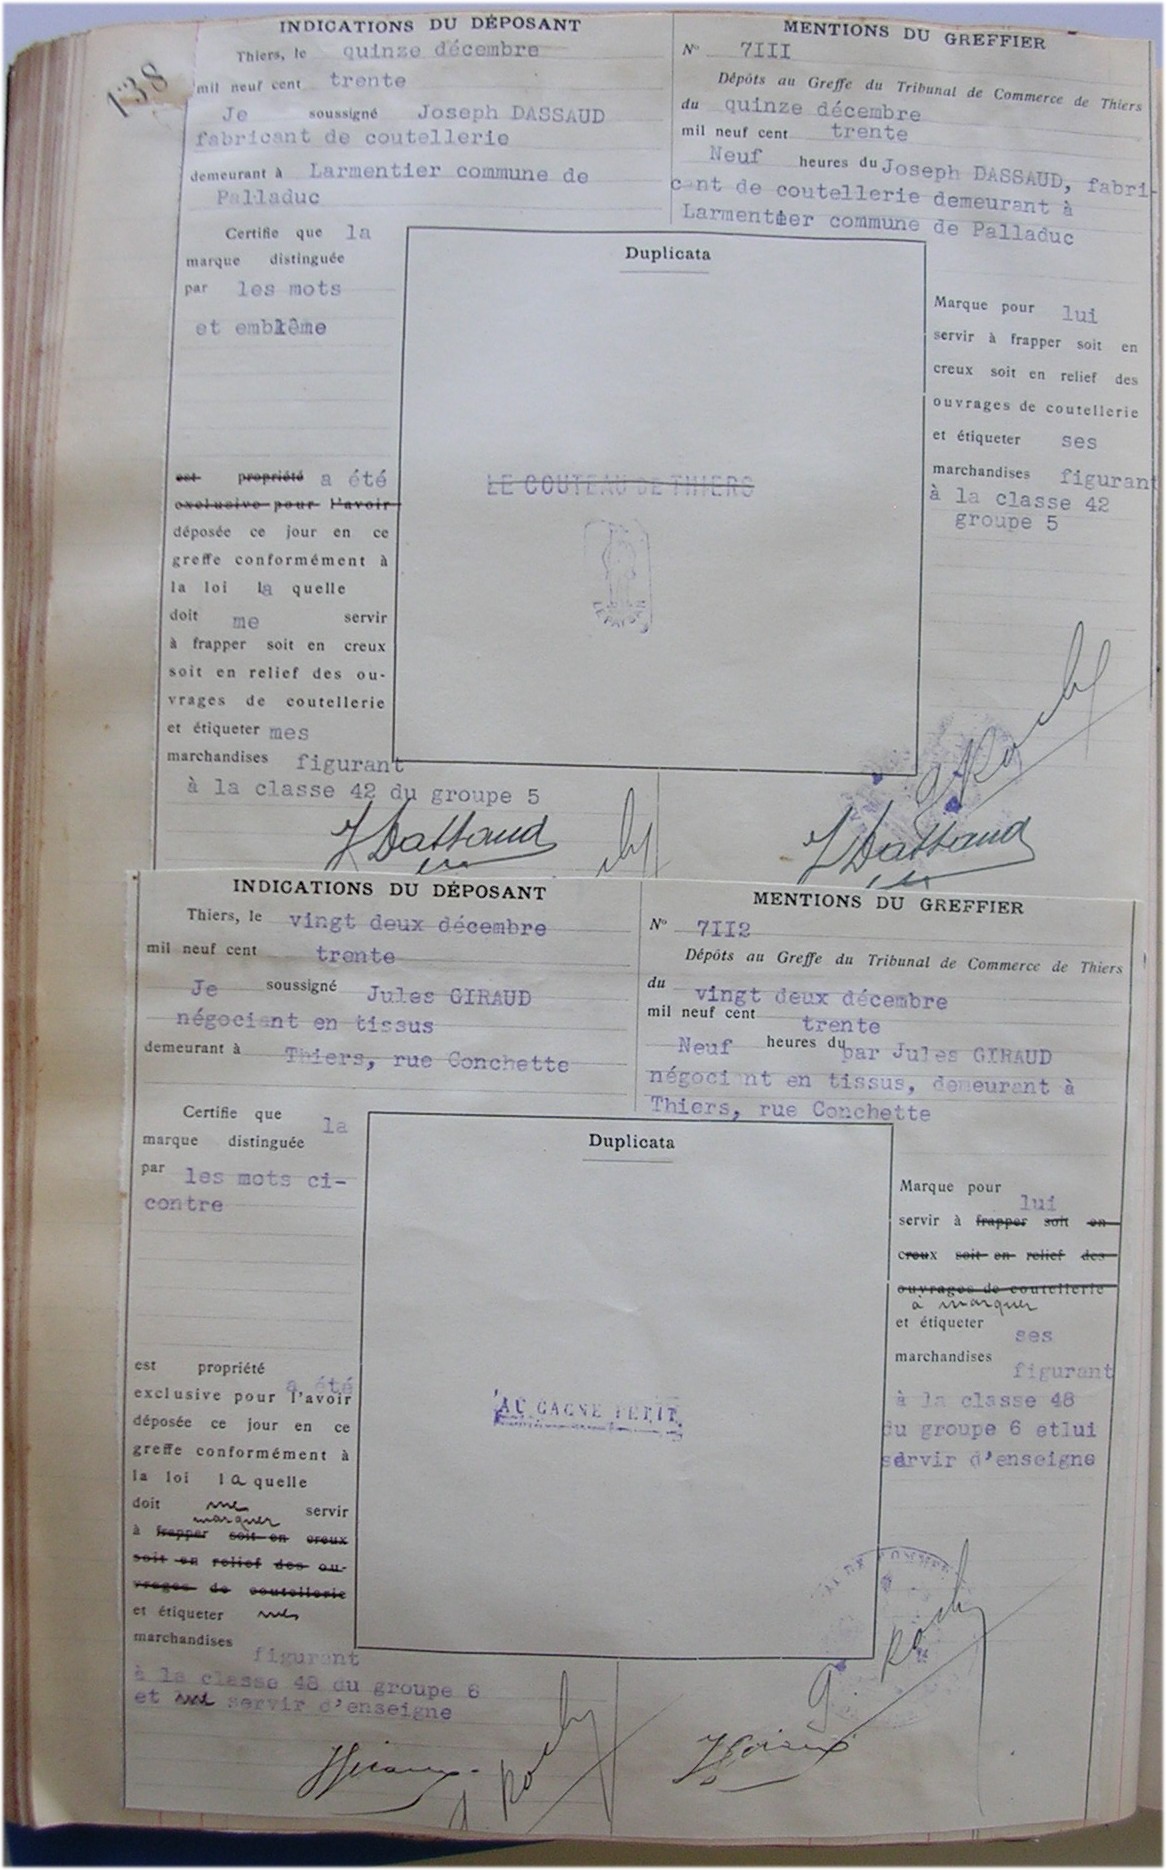 138
INDICATIONS DU DÉPOSANT
Thiers, le quinze décembre
mil neuf cent trente
Je soussigné Joseph DASSAUD
fabricant de coutellerie
demeurant à Larmentier commune de
Palladuc
Certifie que la
marque distinguée
par les mots
et emblême
est propriété a été
exclusive pour l'avoir
déposée ce jour en ce
greffe conformément à
la loi la quelle
doit me servir
à frapper soit en creux
soit en relief des ou-
vrages de coutellerie
et étiqueter mes
marchandises figurant
à la classe 42 du groupe 5
J Dassaud
Duplicata
LE COUTEAU DE THIERS
MENTIONS DU GREFFIER
No 7III
Dépôts au Greffe du Tribunal de Commerce de Thiers
du quinze décembre
mil neuf cent trente
Neuf heures du Joseph DASSAUD, fabri-
cant de coutellerie demeurant à
Larmentier commune de Palladuc
Marque pour lui
servir à frapper soit en
creux soit en relief des
ouvrages de coutellerie
et étiqueter ses
marchandises figurant
à la classe 42
groupe 5
J Dassaud
INDICATIONS DU DÉPOSANT
Thiers, le vingt deux décembre
mil neuf cent trente
Je soussigné Jules GIRAUD
négociant en tissus
demeurant à Thiers, rue Conchette
Certifie que la
marque distinguée
par les mots ci-
contre
est propriété
a été
exclusive pour l'avoir
déposée ce jour en ce
greffe conformément à
la loi la quelle
doit me servir
marquer
à frapper soit en creux
soit en relief des ou-
vrages de coutellerie
et étiqueter mes
marchandises figurant
à la classe 48 du groupe 6
et me servir d'enseigne
Duplicata
AU GAGNE PETIT
MENTIONS DU GREFFIER
No 7II2
Dépôts au Greffe du Tribunal de Commerce de Thiers
du vingt deux décembre
mil neuf cent trente
Neuf heures du par Jules GIRAUD
négociant en tissus, demeurant à
Thiers, rue Conchette
Marque pour lui
servir à frapper soit en
creux soit en relief des
ouvrages de coutellerie
à marquer
et étiqueter ses
marchandises figurant
à la classe 48
du groupe 6 etlui
servir d'enseigne